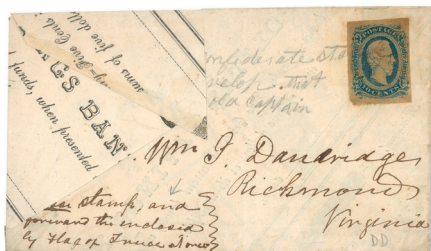 sums of five doll
Five Cents
'S BAN
funds, when presented
nfederate sta
velop. that
old captain
POSTAGE
TEN CENTS
Wm J. Dandridge
Richmond
Virginia
in stamp, and
forward the inclosed
by Flag of Truce
DD